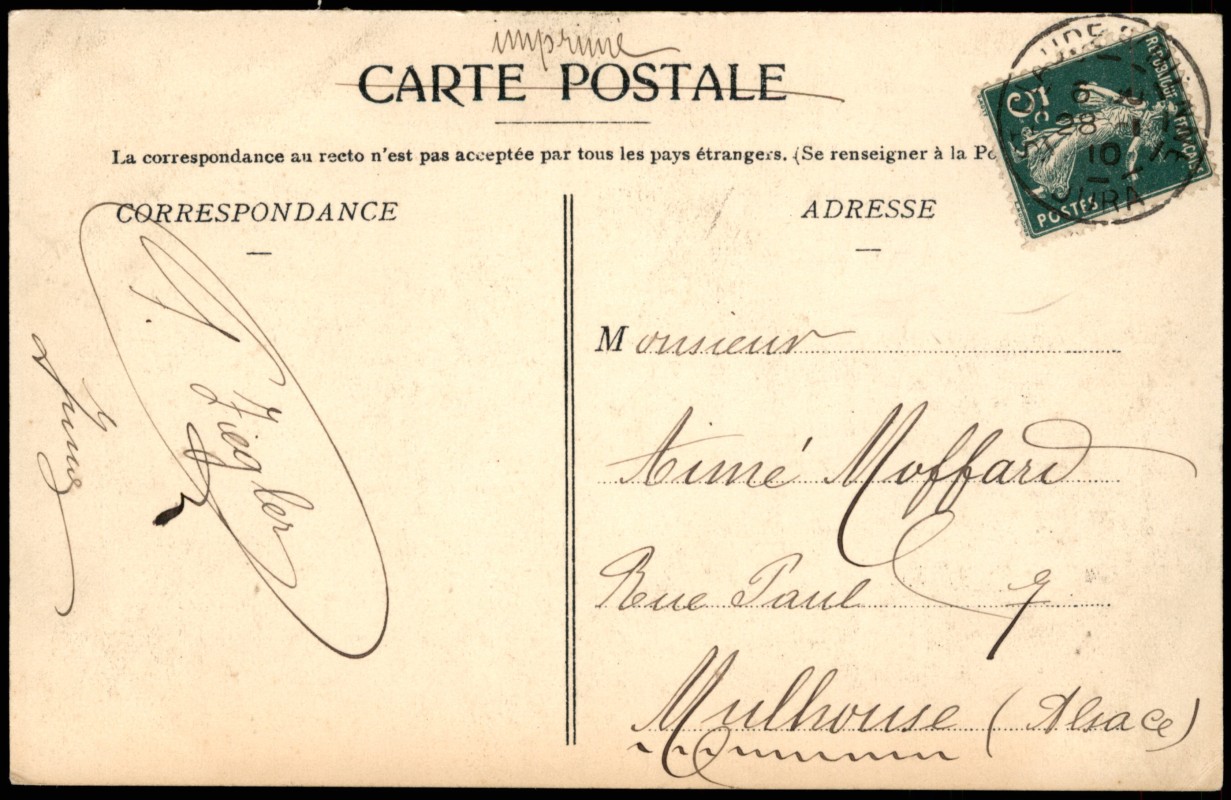 imprimé
CARTE POSTALE
La correspondance au recto n'est pas acceptée par tous les pays étrangers. (Se renseigner à la Po
CORRESPONDANCE
ADRESSE
5c
REPUBLIQUE FRANÇAISE
POSTES
6
28 - 1
10
JURA
Monsieur
Aimé Moffard
Rue Paul 7
Mulhouse (Alsace)
Ziegler